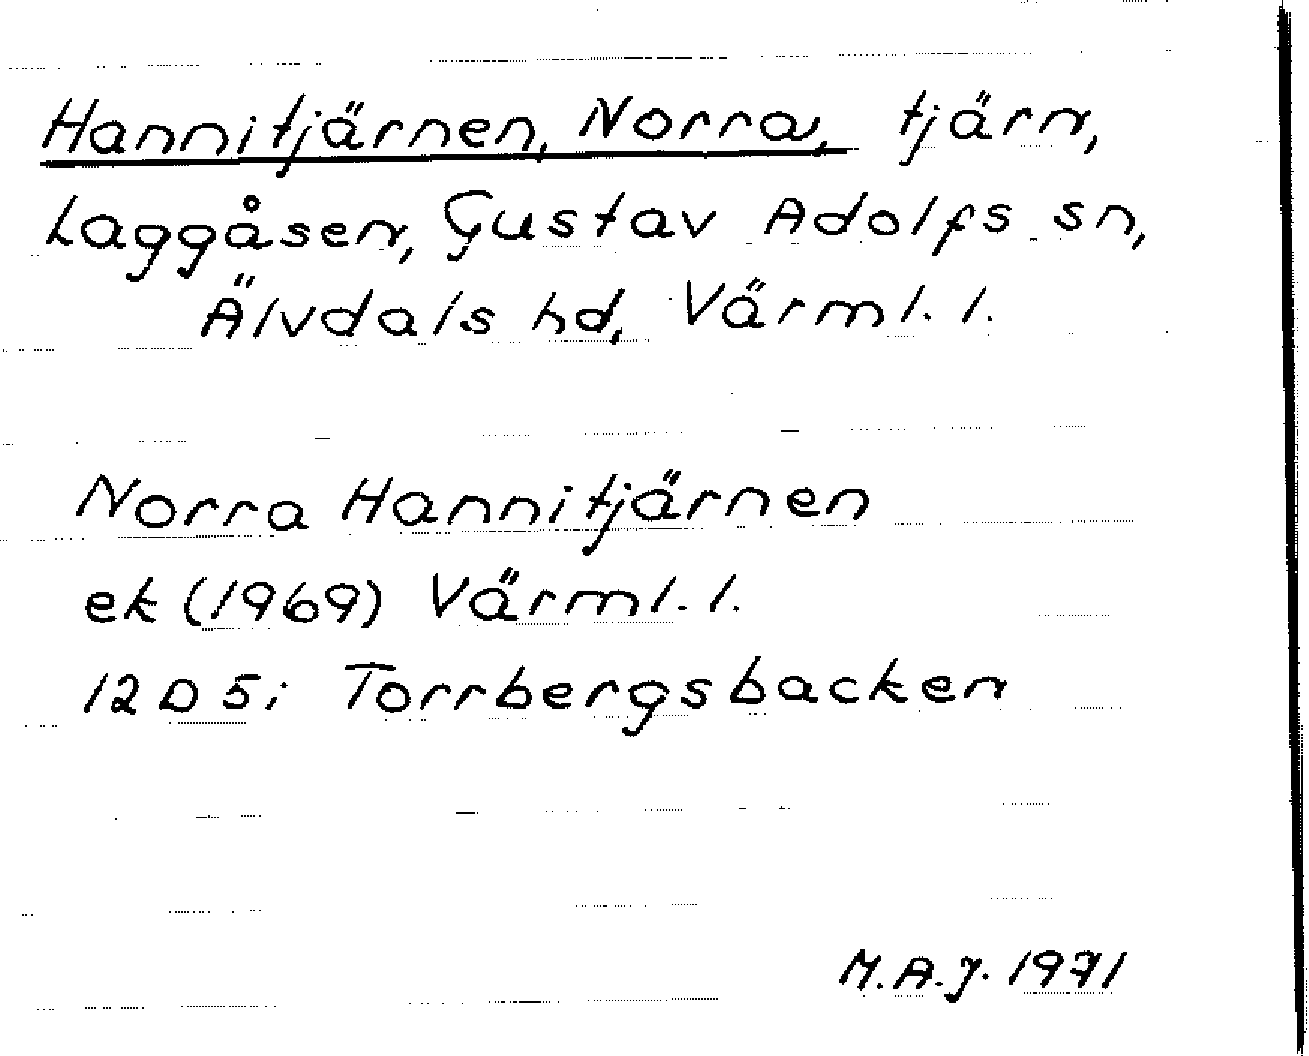 Hannitjärnen, Norra, tjärn,
Laggåsen, Gustav Adolfs sn,
Älvdals hd, Värml. l.
Norra Hannitjärnen
ek (1969) Värml. l.
12 D 5i Torrbergsbacken
M.A.J. 1971